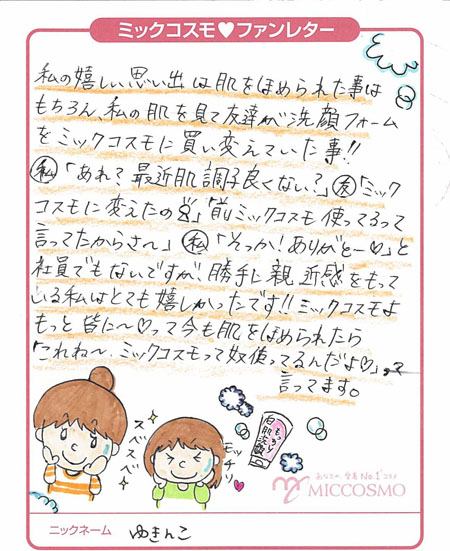 ミックコスモ♥ファンレター
私の嬉しい思い出は肌をほめられた事は
もちろん、私の肌を見て友達が洗顔フォーム
をミックコスモに買い変えていた事!!
私「あれ?最近肌調子良くない?」友「ミック
コスモに変えたの」「前ミックコスモ使ってるって
言ってたからさ〜」私「そっか!ありがと〜♡」と
社員でもないですが勝手に親近感をもって
いる私はとても嬉しかったです!!ミックコスモよ
もっと皆に〜♡って今も肌をほめられたら
「これね〜、ミックコスモって奴使ってるんだよ♡」って
言ってます。
スベスベ
モッチリ
もっちり
白肌洗顔
あなたの 愛着 No.1 コスメ
MICCOSMO
ニックネーム ゆきんこ